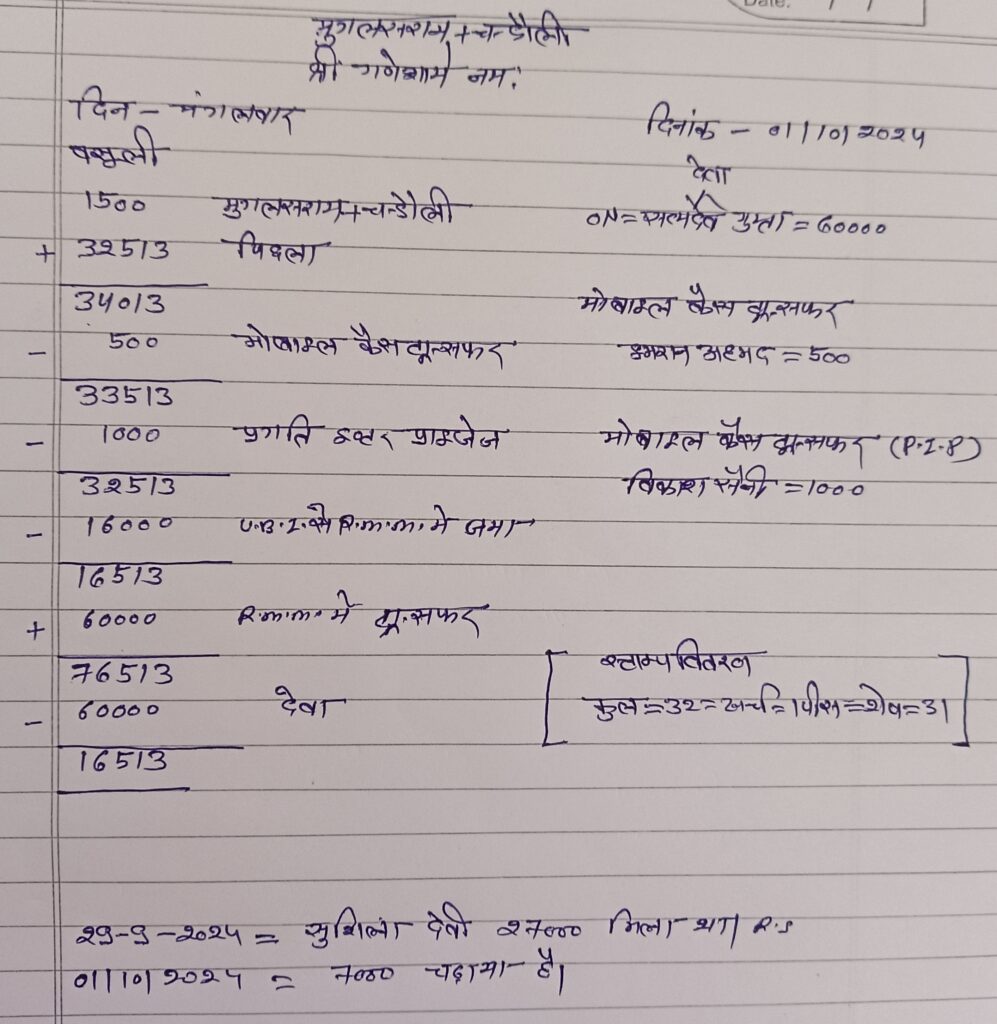 Date. / /
मुगलसराय + चन्दौली
श्री गणेशाय नमः
दिन - मंगलवार दिनांक - 01/10/2024
वसुली देता
1500 मुगलसराय + चन्दौली ON = सत्यदेव गुप्ता = 60000
+ 32513 पिछला
34013 मोबाइल कैस ट्रान्सफर
- 500 मोबाइल कैस ट्रान्सफर इमरान अहमद = 500
33513
- 1000 प्रगति इन्टर प्राइजेज मोबाइल कैस ट्रान्सफर (P.I.P)
32513 विकाश सैनी = 1000
- 16000 U.B.I. से R.m.m. मे जमा
16513
+ 60000 R.m.m. मे ट्रान्सफर
76513 स्टाम्प वितरण
- 60000 देवा कुल = 32 = खर्च = 1 पीस = शेष = 31
16513
29-9-2024 = सुशिला देवी 27000 मिला था। R.S
01/10/2024 = 7000 चढ़ाया है।